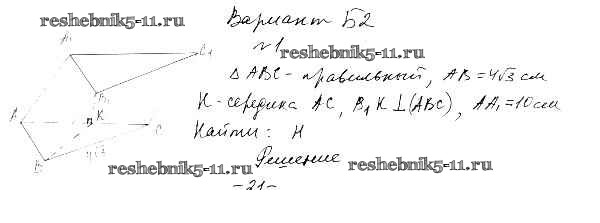 reshebnik5-11.ru
Вариант Б2
№1
reshebnik5-11.ru
Δ ABC - правильный, AB = 4√3 см
K - середина AC, B₁K ⊥ (ABC), AA₁ = 10 см
Найти: H
Решение
reshebnik5-11.ru
reshebnik5-11.ru
A₁
C₁
B₁
A
K
C
B
4√3
- 21 -